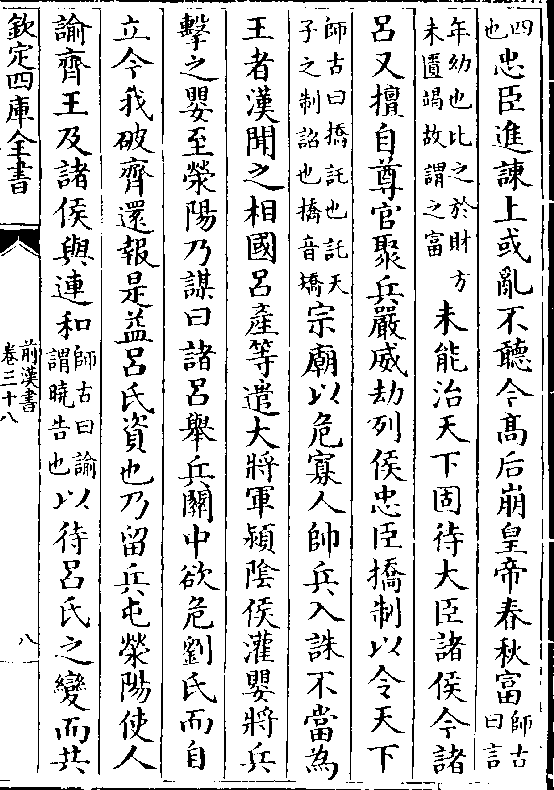 四也忠臣進諫上或亂不聽今髙后崩皇帝春秋富師古曰言
年幼也比之於財方未匱竭故謂之富未能治天下固待大臣諸侯今諸
呂又擅自尊官聚兵嚴威劫列侯忠臣撟制以令天下
師古曰撟託也託天子之制詔也撟音矯宗廟以危寡人帥兵入誅不當為
王者漢聞之相國呂產等遣大將軍潁陰侯灌嬰將兵
擊之嬰至滎陽乃謀曰諸呂舉兵關中欲危劉氏而自
立今我破齊還報是益呂氏資也乃留兵屯滎陽使人
諭齊王及諸侯與連和師古曰諭謂曉告也以待呂氏之變而共
欽定四庫全書
前漢書
卷三十八
八